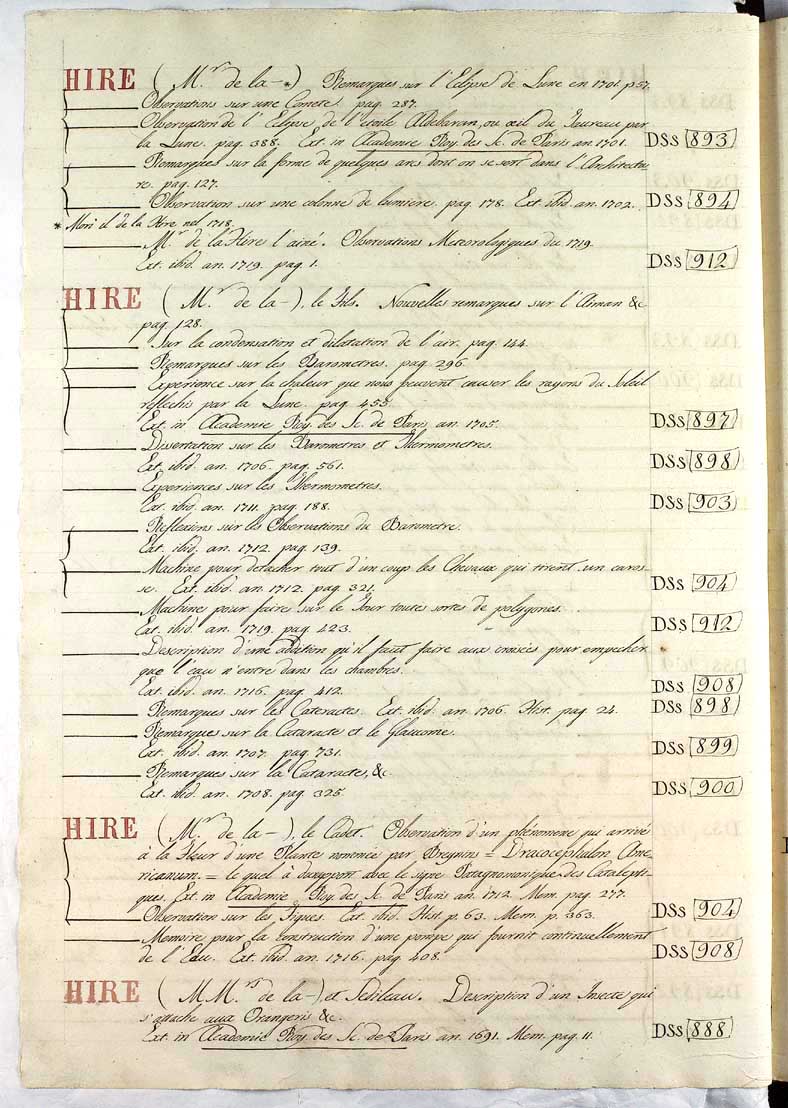 HIRE ( M.r de la - * ) Remarques sur l'Eclipse de Lune en 1701. p. 57.
Observations sur une Comete. pag. 287.
Observation de l'Eclipse de l'etoile Aldebaran, ou œil du Taureau par
la Lune. pag. 388. Ext. in Academie Roy. des Sc. de Paris an. 1701. DSs 893
Remarques sur la forme de quelques arcs dont on se sert dans l'Architectu
re. pag. 127.
Observation sur une colonne de lumiere. pag. 178. Ext. ibid. an. 1702. DSs 894
* Morì il de la Hire nel 1718.
M.r de la Hire l'ainé. Observations Meteorologiques du 1719.
Ext. ibid. an. 1719. pag. 1. DSs 912
HIRE ( M.r de la - ), le Fils. Nouvelles remarques sur l'Aiman &c.
pag. 128.
Sur la condensation et dilatation de l'air. pag. 144.
Remarques sur les Barometres. pag. 296.
Experience sur la chaleur que nous peuvent causer les rayons du Soleil
reflechis par la Lune. pag. 455.
Ext. in Academie Roy. des Sc. de Paris an. 1705. DSs 897
Dissertation sur les Barometres et Thermometres.
Ext. ibid. an. 1706. pag. 561. DSs 898
Experiences sur les Thermometres.
Ext. ibid. an. 1711. pag. 188. DSs 903
Reflexions sur les Observations du Barometre.
Ext. ibid. an. 1712. pag. 139.
Machine pour detacher tout d'un coup les Chevaux qui tirent un caros-
se. Ext. ibid. an. 1712. pag. 321. DSs 904
Machine pour faire sur le Tour toute sortes de polygones.
Ext. ibid. an. 1719. pag. 423. DSs 912
Description d'une addition qu'il faut faire aux croisées pour empecher
que l'eau n'entre dans les chambres.
Ext. ibid. an. 1716. pag. 412. DSs 908
Remarques sur les Cateractes. Ext. ibid. an. 1706. Hist. pag. 24. DSs 898
Remarques sur la Cataracte et le Glaucome.
Ext. ibid. an. 1707. pag. 731. DSs 899
Remarques sur la Cataracte, &c.
Ext. ibid. an. 1708. pag. 325. DSs 900
HIRE ( M.r de la - ), le Cadet. Observation d'un phénomene qui arrive
à la Fleur d'une Plante nommée par Breynius = Dracocephalon Ame-
ricanum. = le quel à du rapport avec le signe des Catalepti-
ques. Ext. in Academie Roy. des Sc. de Paris an. 1712. Mem. pag. 277.
Observation sur les Figues. Ext. ibid. Hist. p. 63. Mem. p. 363. DSs 904
Memoire pour la construction d'une pompe qui fournit continuellement
de l'Eau. Ext. ibid. an. 1716. pag. 408. DSs 908
HIRE ( MM.rs de la - ) et Sedileau. Description d'un Insecte qui
s'attache aux Orangeris &c.
Ext. in Academie Roy. des Sc. de Paris an. 1691. Mem. pag. 11. DSs 888